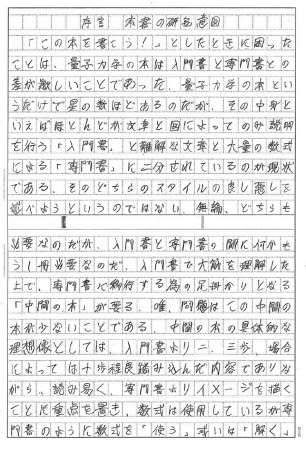 序章 本書の研究意図
「この本を書こう！」としたときに困った
ことは、量子力学の本は入門書と専門書との
差が激しいことであった。量子力学の本とい
うだけで星の数ほどあるのだが、その中身と
いえばほとんどが文章と図によってのみ説明
を行う「入門書」と難解な文章と大量の数式
による「専門書」に二分されているのが現状
である。そのどちらのスタイルの良し悪しを
述べようというのではない。無論、どちらも
必要なのだが、入門書と専門書の間に何かも
う1冊必要なのだ。入門書で大筋を理解した
上で、専門書に移行する為の足掛かりとなる
「中間の本」が要る。唯、問題はこの中間の
本が少ないことである。中間の本の具体的な
理想像としては、入門書より二、三歩、場合
によっては十歩程度踏み込んだ内容でありな
がら、読み易く、専門書よりイメージを描く
ことに重点を置き、数式は使用しているが専
門書のように数式を「使う」或いは「解く」